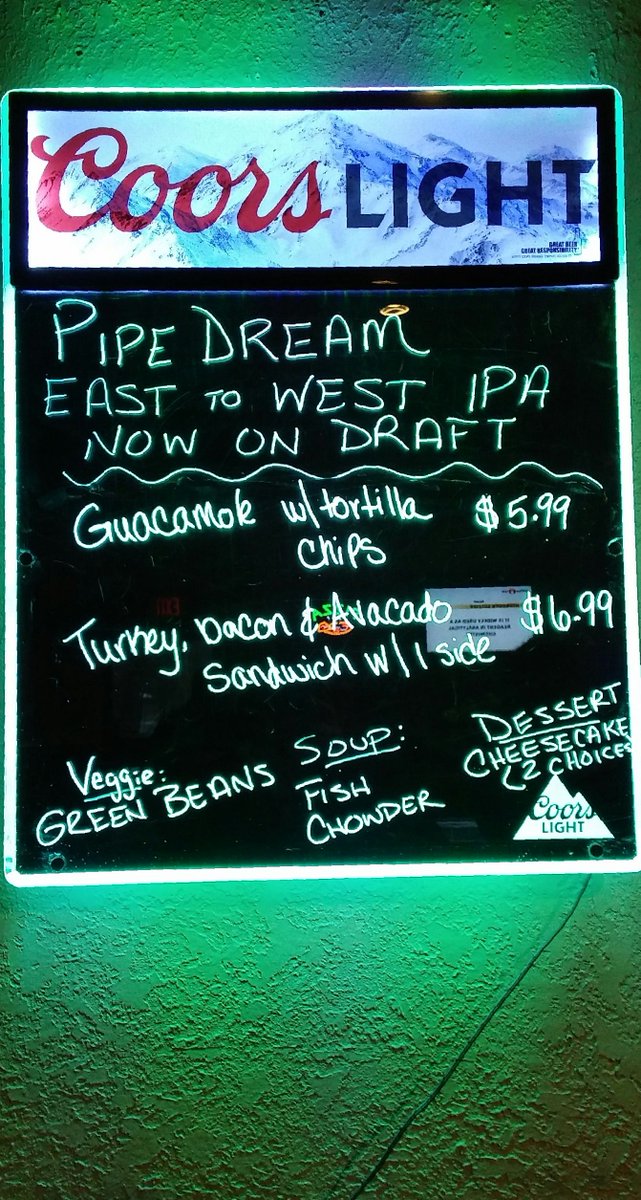 Coors LIGHT
GREAT BEER
GREAT RESPONSIBILITY
PIPE DREAM
EAST TO WEST IPA
NOW ON DRAFT
Guacamole w/tortilla $5.99
chips
Turkey, bacon & Avacado $6.99
Sandwich w/1 side
DESSERT
CHEESECAKE
(2 CHOICES
Soup:
FISH
CHOWDER
Veggie:
GREEN BEANS
Coors
LIGHT